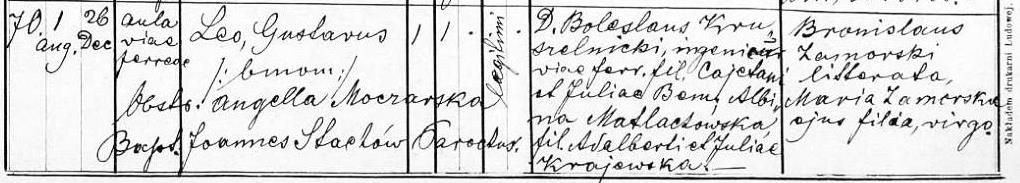 70. 1 aug. 26 Dec
aula viae ferreae
Leo, Gustavus
/: bmom :/
1 1 . . legitimi
Obstr. Angella Moczarska
Bapt. Joannes Stachów Parochus.
D. Boleslaus Kru-
szelnicki, ingenieur
viae ferr. fil. Cajetani
et Juliae Bem; Albi-
na Matlachowska,
fil. Adalberti et Juliae
Krajewska.
Bronislaus
Zamorski
litterata,
Maria Zamorska
ejus filia, virgo.
Nakładem drukarni Ludowej.